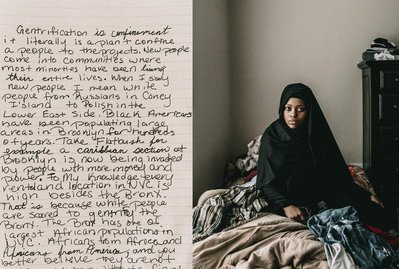 Gentrification is confinement
it literally is a plan to confine
a people to the projects. New people
come into communities where
most minorities have been living
their entire lives. When I say
new people I mean white
people from Russians in Coney
Island to Polish in the
Lower East Side. Black Americans
have been populating large
areas in Brooklyn for hundreds
of years. Take Flatbush for
example a caribbean section of
Brooklyn is now being invaded
by people with more money and
power. To my knowledge every
rent and location in NYC is
high besides the Bronx.
That is because white people
are scared to gentrify the
Bronx. The Bronx has one of
largest African populations in
NYC. Africans from Africa and
Africans from America and you
better believe they are not